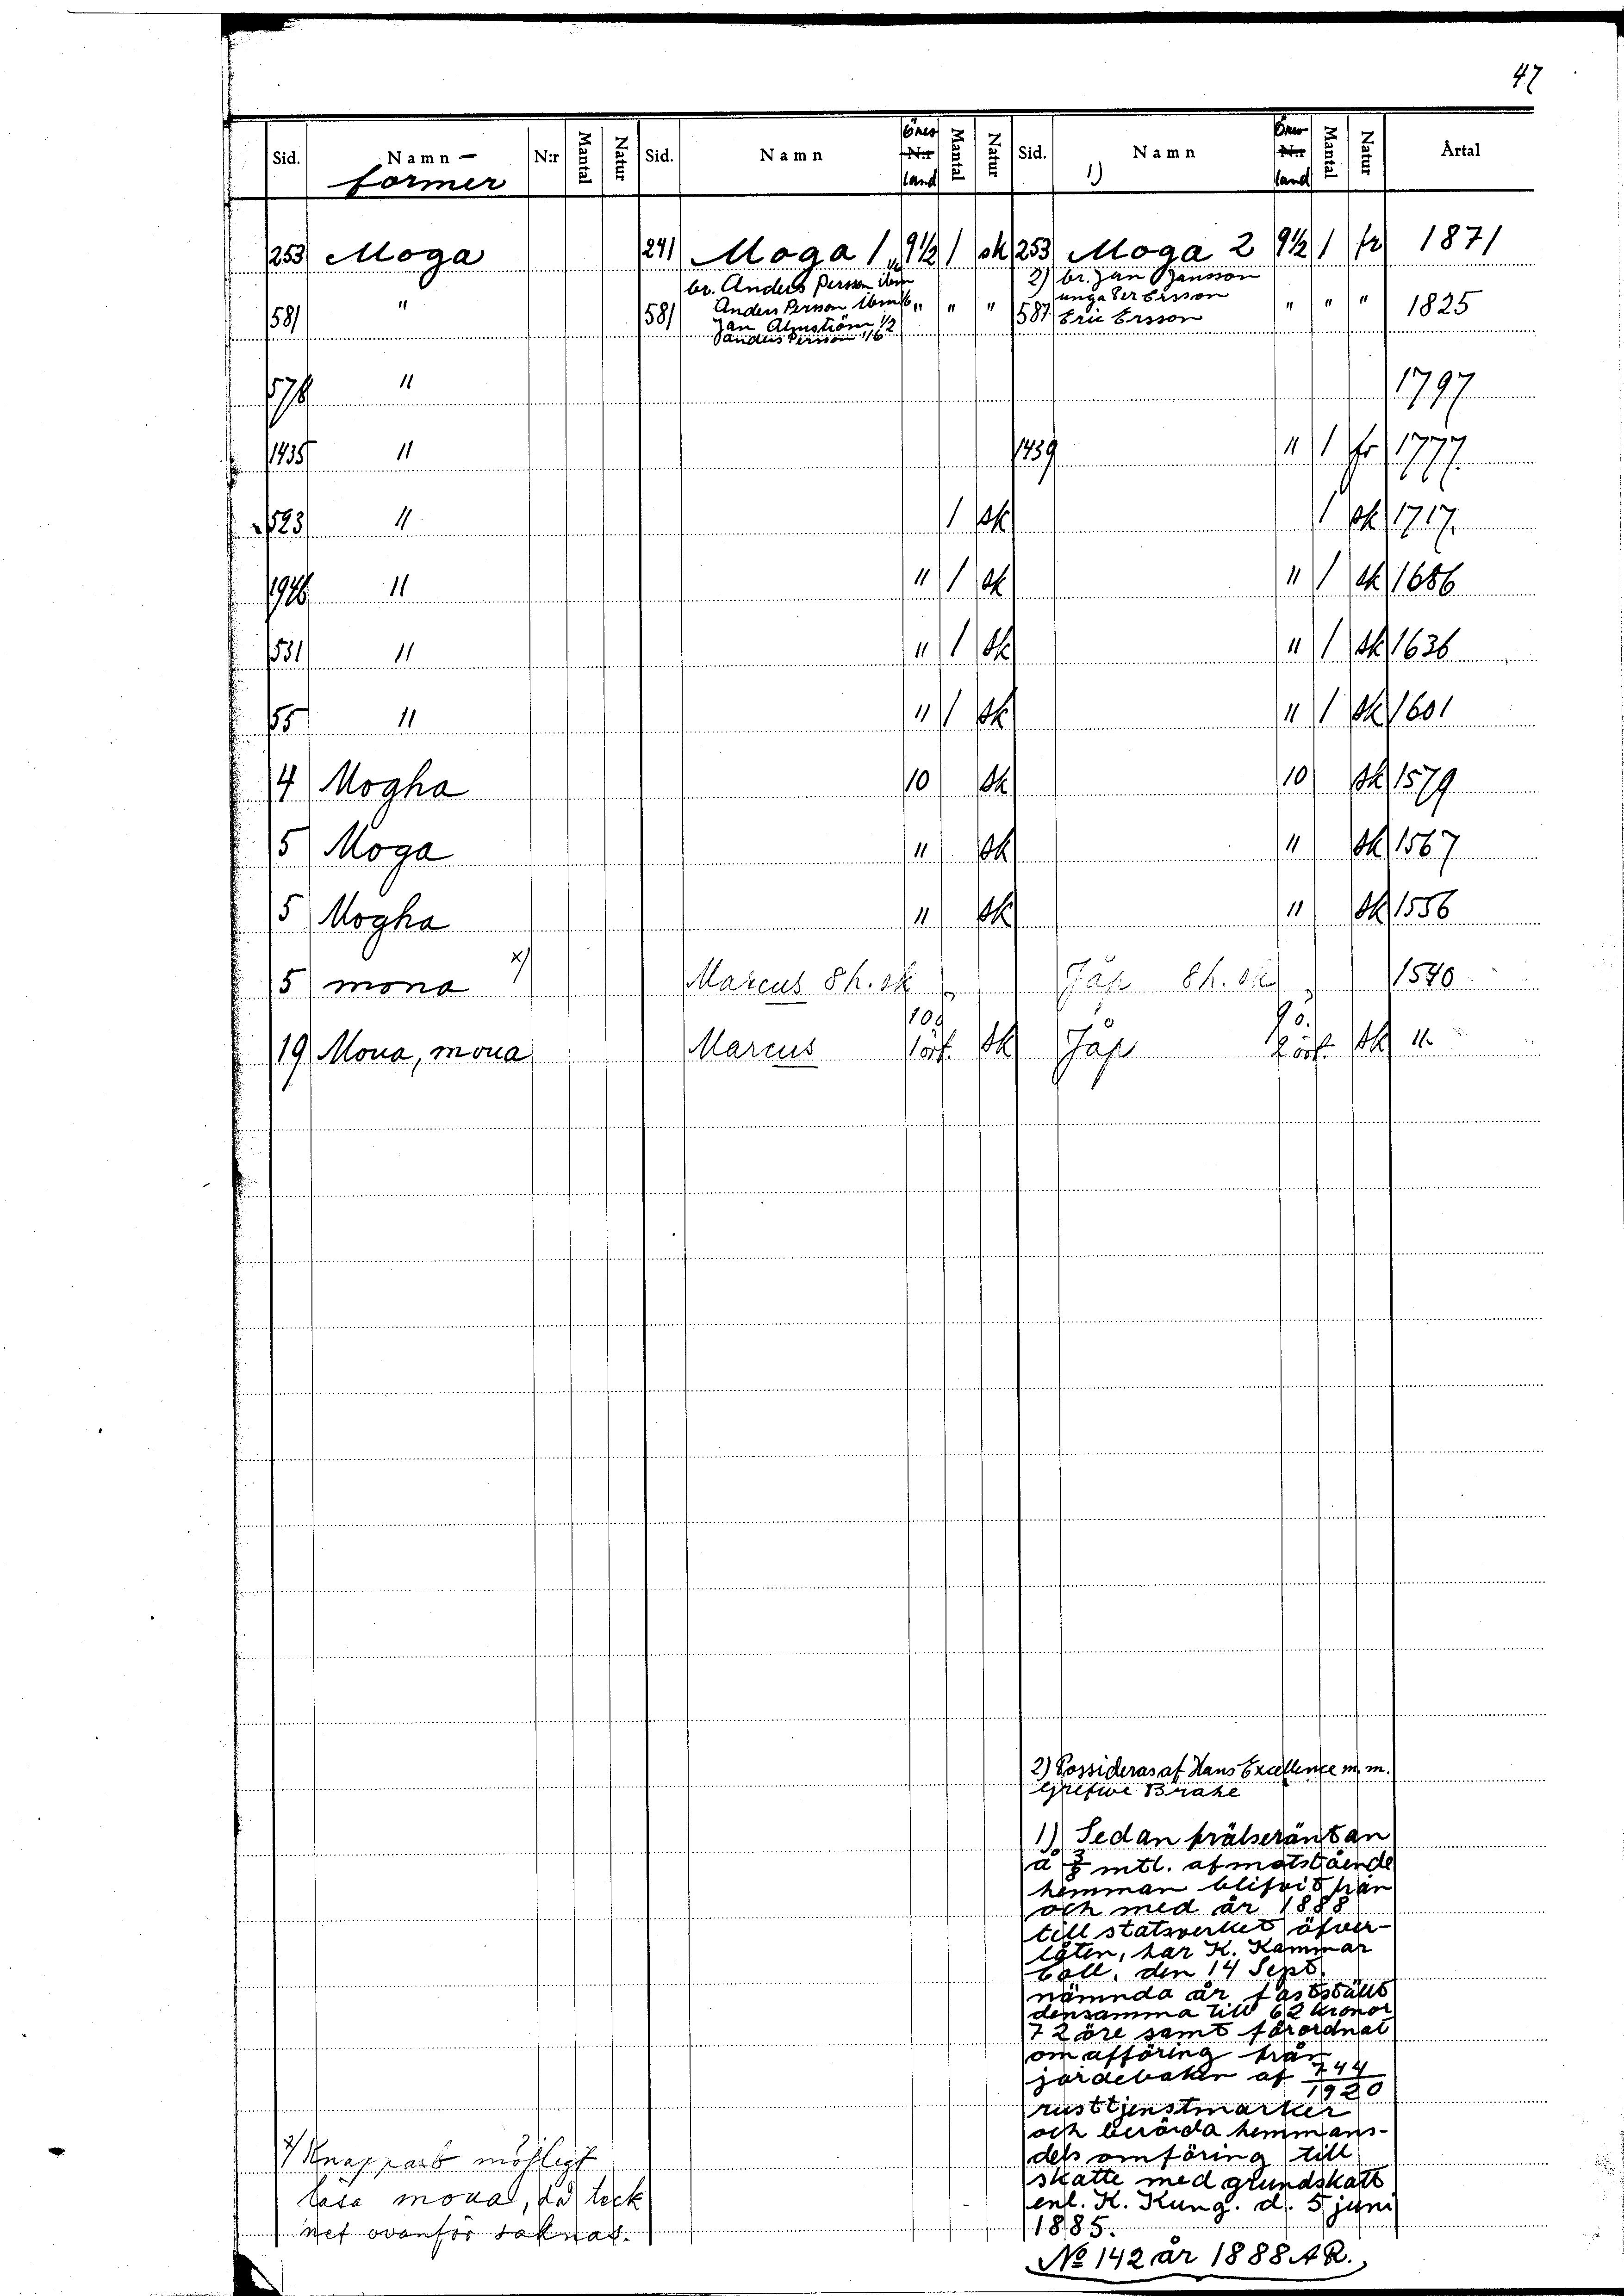 47
Sid. Namn- N:r Mantal Natur Sid. Namn Öres N:r land Mantal Natur Sid. Namn Öres N:r land Mantal Natur Årtal
former 1)
253 Moga 241 Moga 1 9½ 1 sk 253 Moga 2 9½ 1 fr 1871
br. Anders Persson ibm 2) br. Jan Jansson
581 " 581 Anders Person ibm 1/6 " " " 587 unga Per Ersson " " " 1825
Jan Almström 1/2 Eric Ersson
Anders Persson 1/6
578 " 1797
1435 " 1439 " 1 fr 1777
523 " 1 sk 1 sk 1717
1946 " " 1 sk " 1 sk 1686
531 " " 1 sk " 1 sk 1636
55 " " 1 sk " 1 sk 1601
4 Mogha 10 sk 10 sk 1579
5 Moga " sk " sk 1567
5 Mogha " sk " sk 1556
5 mona x) Marcus 8 h. sk Jáp 8 h. sk 1540
19 Moua, moua Marcus 10ö 1 ört. sk Jåp 9ö. 2 ört. sk "
2) Possideras af Hans Excellence m. m.
Grefwe Brahe
1) Sedan frälseräntan
å mtl. af motstående
hemman blifvit från
och med år 1888
till statsverket öfver-
låten, har K. Kammar
Coll. den 14 Sept.
nämnda år fastställt
densamma till 62 kronor
72 öre samt förordnat
om afföring från
jordeboken af 744/1920
rusttjenstmarker
och berörda hemmans-
dels omföring till
skatte med grundskatt
enl. K. Kung. d. 5 juni
1885.
No 142 år 1888 A R.
x) Knappast möjligt
läsa moua, då teck
net ovanför saknas.